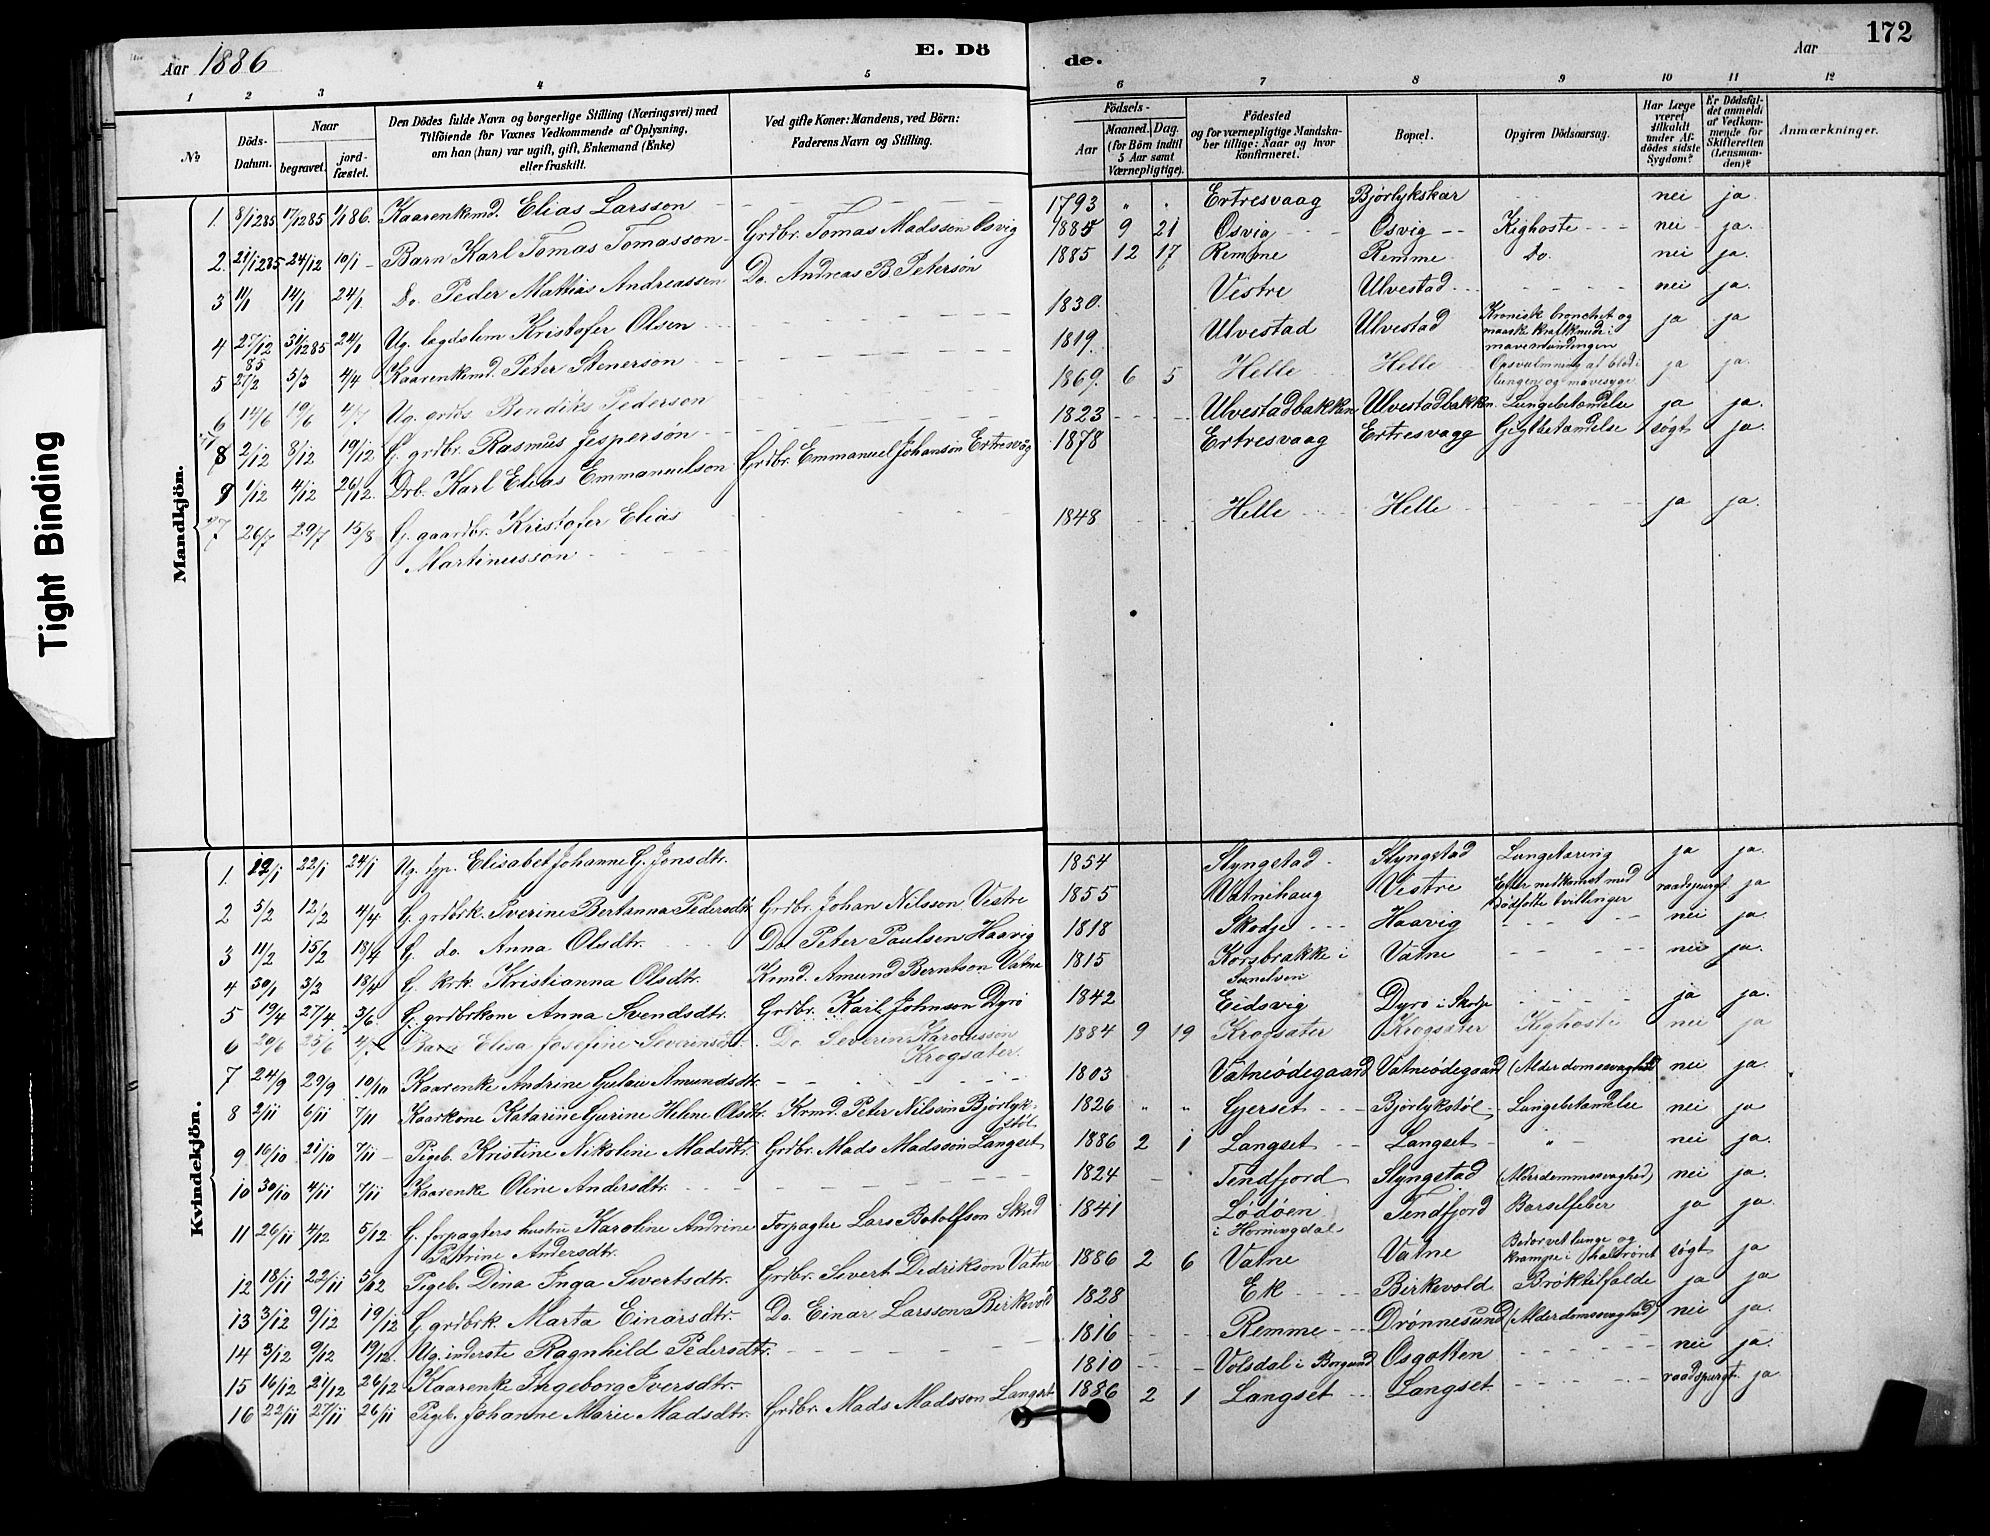 Tight Binding
Aar 1886
E. Dö
de.
Aar
172
1 2 3 4 5 6 7 8 9 10 11 12
No
Döds-Datum.
Naar
begravet.
jord-fæstet.
Den Dödes fulde Navn og borgerlige Stilling (Næringsvei) med
Tilföiende for Voxnes Vedkommende af Oplysning,
om han (hun) var ugift, gift, Enkemand (Enke)
eller fraskilt.
Ved gifte Koner: Mandens, ved Börn:
Faderens Navn og Stilling.
Födsels-
Aar
Maaned. Dag.
(for Börn indtil
5 Aar samt
Værnepligtige).
Födested
og for værnepligtige Mandska-
ber tillige: Naar og hvor
konfirmeret.
Bopæl.
Opgiven Dödsaarsag.
Har Læge
været
tilkaldt
under Af-
dödes sidste
Sygdom?
Er Dödsfal-
det anmeldt
af Vedkom-
mende for
Skifteretten
(Lensman-
den)?
Anmærkninger.
Mandkjön.
1. 8/1285 17/1285 1/1 86. Kaarenkemd. Elias Larsson 1793 " " Ertresvaag Bjørlykskar nei ja.
2. 21/1285 24/12 10/1 Barn Karl Tomas Tomasson Grdbr. Tomas Madsson Osvig 1885 9 21 Osvig Osvig Kighoste nei ja.
3 11/1 14/1 24/1 Do. Peder Mattias Andreassen Do. Andreas B. Petersøn 1885 12 17 Remme Remme Do. nei ja.
4 27/12 85 31/1285 24/1 Ug. lægdslem Kristofer Olsen 1830. Vestre Ulvestad nei ja.
5 27/2 5/3 4/4 Kaarenkemd. Peter Stenersøn 1819. Ulvestad Ulvestad Kronisk bronchit og
maaske kræftknude i
mavemundingen ja ja.
6 14/6 19/6 4/7 Ug. grds Bendiks Pederson 1869. 6 5 Helle Helle Opsvulmning af blod i
lungen og mavesyge ja ja.
8 2/12 8/12 19/12 G. grdbr. Rasmus Jespersøn 1823 Ulvestadbakken Ulvestadbakken Lungebetændelse ja ja.
9 1/12 4/12 26/12. Drb. Karl Elias Emmanuelson Grdbr. Emmanuel Johanson Ertresvåg 1878 Ertresvaag Ertresvaag søgt ja.
7 26/7 29/7 15/8 G. gaardbr. Kristofer Elias
Martinusson 1848 Helle Helle ja ja.
Kvindekjön.
1. 12/1 22/1 24/1 Ug. Elisabet Johanne G. Jonsdtr. 1854 Slyngstad Slyngstad Lungetæring ja ja.
2 5/2 12/2 4/4 G. grdbrk. Iverine Bertanna Pedersdtr. Grdbr. Johan Nilsson Vestre 1855 Vatnehaug Vestre Efter nedkomst med
dødfødte tvillinger raadspurgt ja
3 11/2 15/2 18/4 G. do. Anna Olsdtr. Do Peter Paulsen Haavig 1818 Skodje Haavig nei ja.
4 30/1 3/2 18/4 G. krk. Kristianna Olsdtr. Krmd. Amund Berntson Vatne 1815 Korsbrække i
Sunelven Vatne nei ja.
5 19/4 27/4 3/6. G. grdbrkone Anna Svendsdtr. Grdbr. Karl Johnson Dyrø 1842 Eidsvig Dyrø i Skodje ja ja.
6 20/6 25/6 4/7 Barn Elisa Josefine Severinsdt. Do Severin Karolusson
Krogsæter. 1884 9 19 Krogsæter Krogsæter Kighoste nei ja
7 24/9 29/9 10/10 Kaarenke Andrine Gulau Amundsdtr. 1803 Vatneødegaard Vatneødegaard (Alderdomssvaghed) nei ja.
8 2/11 6/11 7/11 Kaarkone Katarine Gurine Helene Olsdtr. Krmd. Peter Nilssøn Bjørlyk-
støl 1826 " " Gjerset Bjørlykstøl Lungebetændelse nei ja
9 16/10 21/10 7/11 Pigeb. Kristine Nikoline Madsdtr. Grdbr. Mads Madssøn Langset 1886 2 1 Langset Langset " nei ja.
10 30/10 4/11 7/11 Kaarenke Oline Andersdtr. 1824 Tendfjord Slyngstad (Alderdommssvaghed) nei ja.
11 26/11 4/12 5/12 G. forpagters hustru Karoline Andrine
Petrine Andersdtr. Forpagter Lars Botolfson Skred 1841 Lødøen
i Horningdal Tendfjord Barselfeber ja ja.
12 18/11 22/11 5/12 Pigeb. Dina Inga Sivertsdtr. Grdbr. Sivert Didrikson Vatne 1886 2 6 Vatne Vatne Bedærvet lunge og
krampe i halsrøret søgt ja
13 3/12 9/12 19/12 G. grdbrk. Marta Einarsdtr. Do. Einar Larsson Birkevold 1828 Ek Birkevold Brøktilfælde ja ja
14 3/12 9/12 19/12. Ug. inderste Ragnhild Pedersdtr. 1816 Remme Drønnesund (Alderdomssvaghed) nei ja.
15 16/12 21/12 26/12 Kaarenke Ingeborg Iversdtr. 1810 Volsdal i Borgund Osgotten nei ja.
16 22/11 27/11 26/11 Pigeb. Johanne Marie Madsdtr. Grdbr. Mads Madsson Langset 1886 2 1 Langset Langset. raadspurgt ja